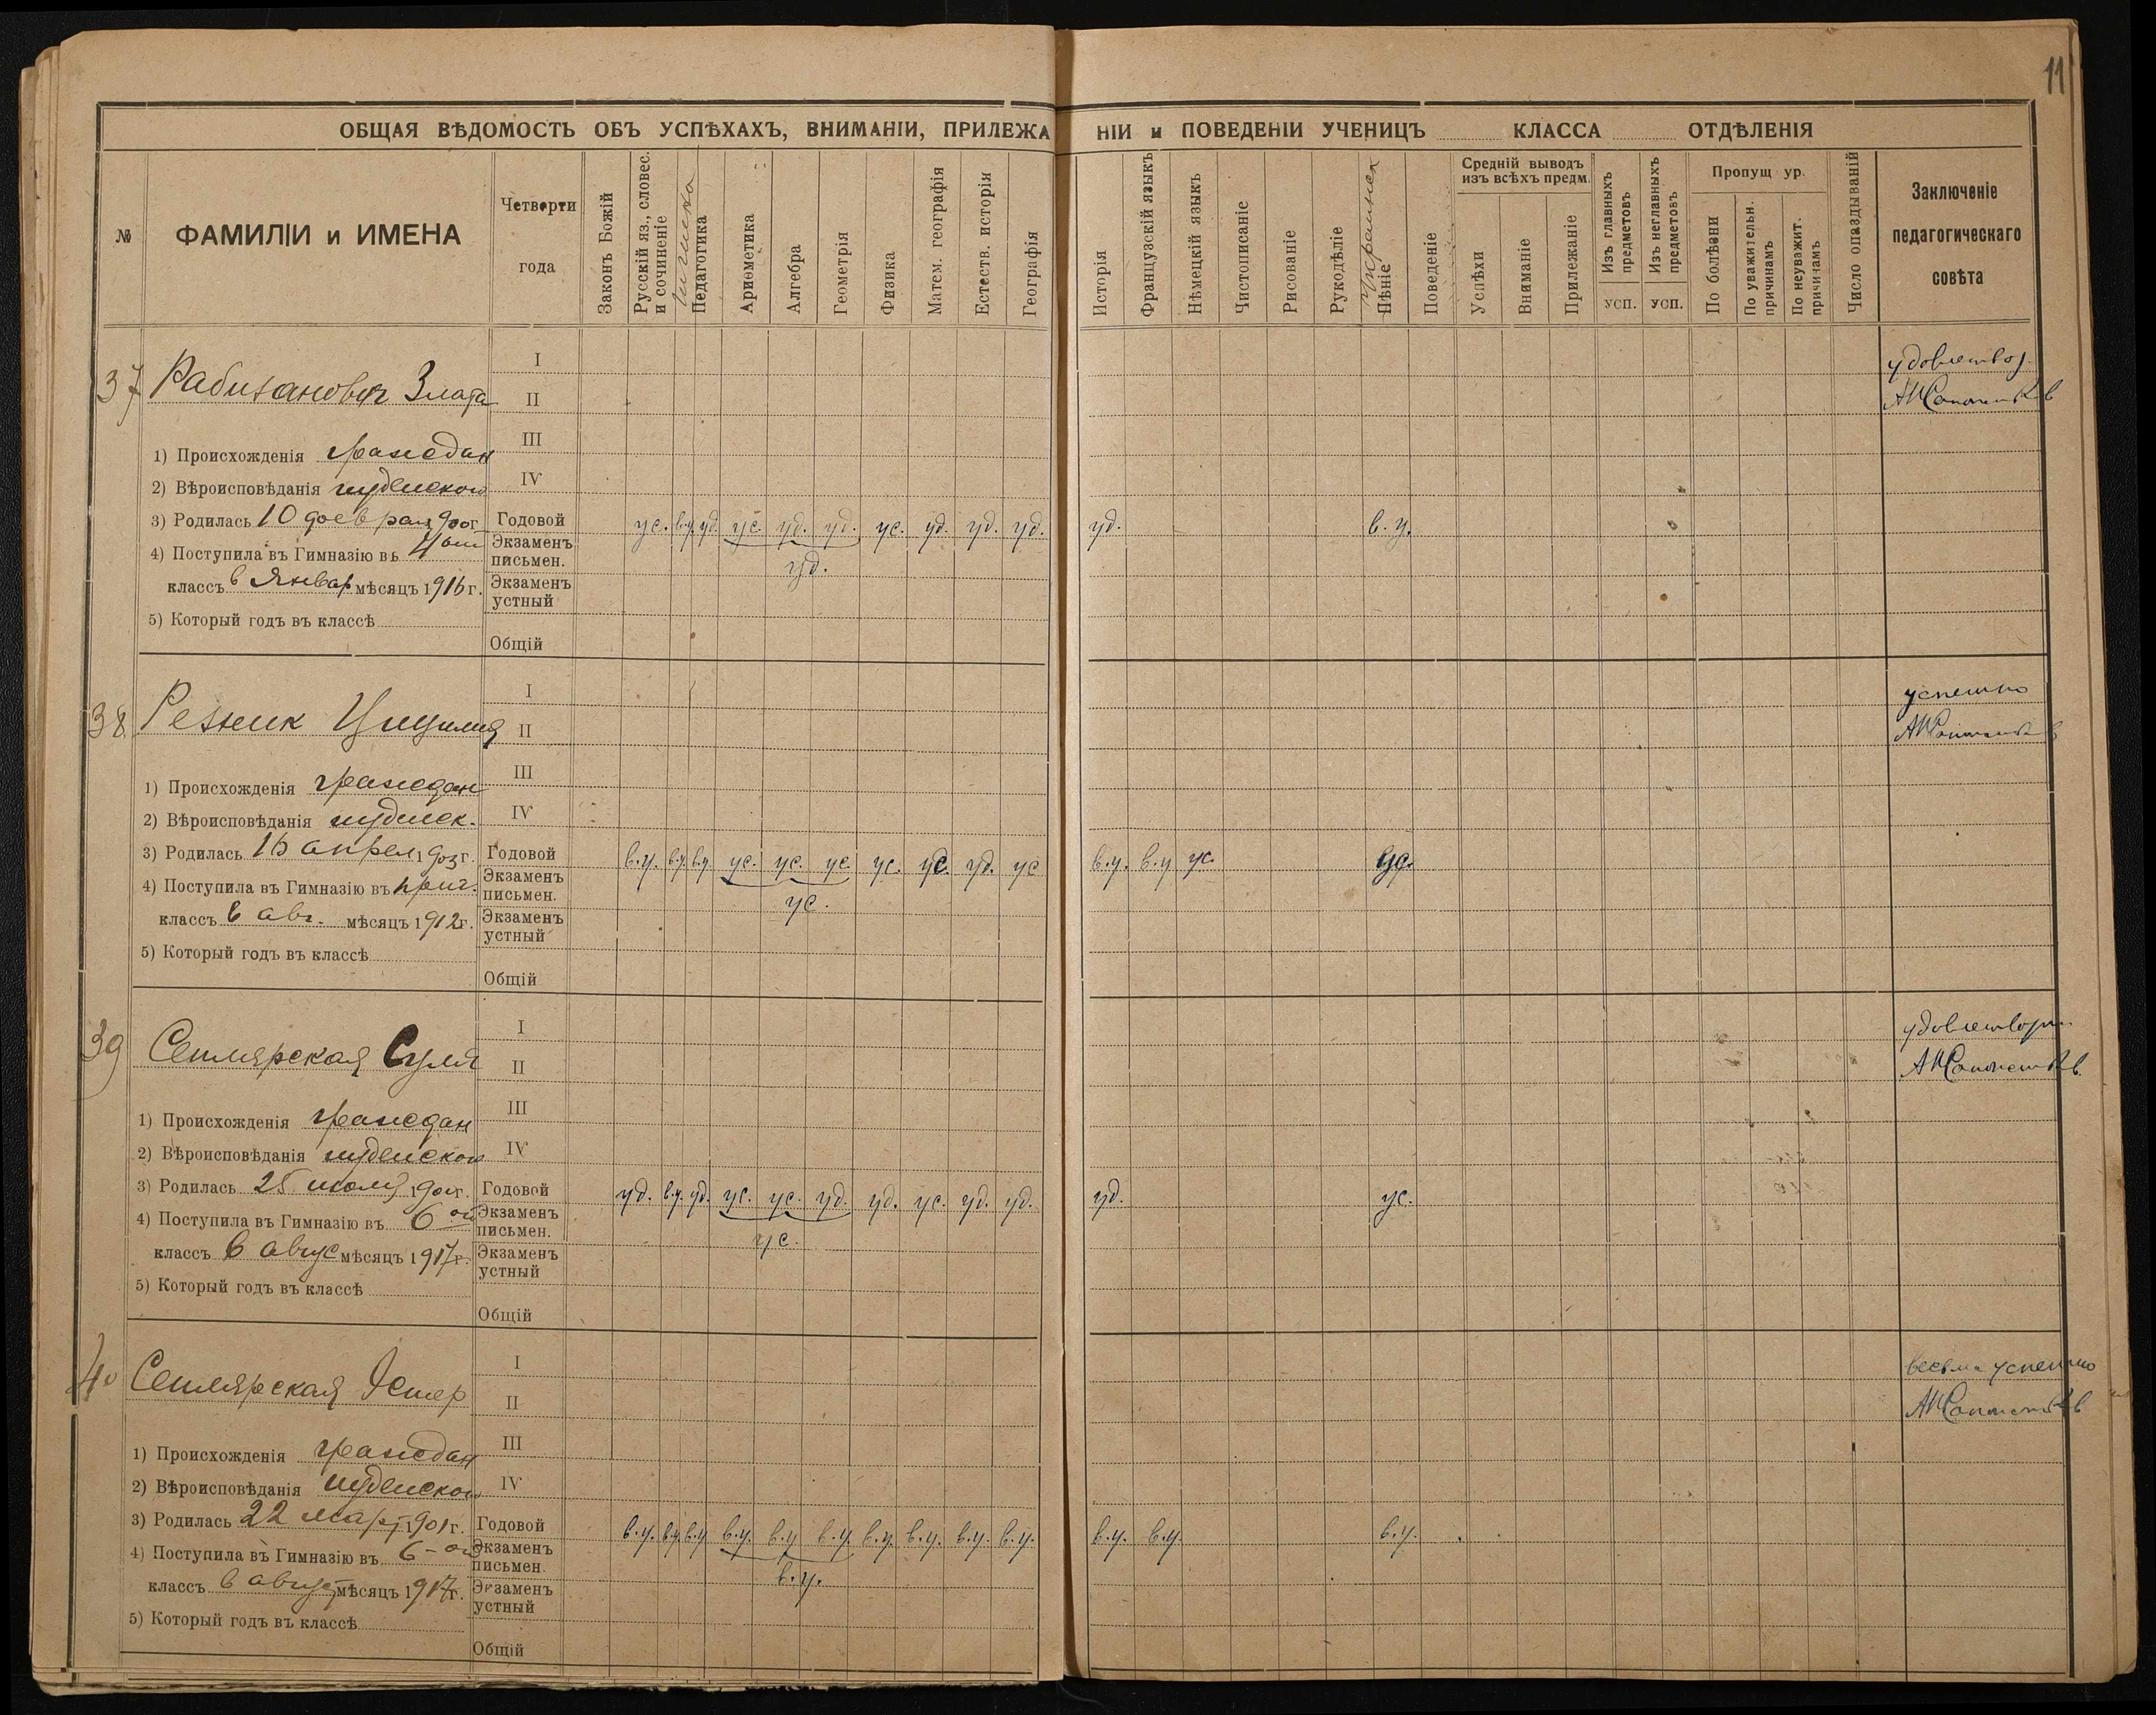 11
ОБЩАЯ ВѢДОМОСТЬ ОБЪ УСПѢХАХЪ, ВНИМАНІИ, ПРИЛЕЖАНІИ и ПОВЕДЕНІИ УЧЕНИЦЪ КЛАССА ОТДѢЛЕНІЯ
№
ФАМИЛІИ и ИМЕНА
Четверти
года
Законъ Божій
Русскій яз., словес.
и сочиненіе
Гигиена
Педагогика
Ариѳметика
Алгебра
Геометрія
Физика
Матем. географія
Естеств. исторія
Географія
Исторія
Французскій языкъ
Нѣмецкій языкъ
Чистописаніе
Рисованіе
Рукодѣліе
Пѣніе
Поведеніе
Средній выводъ
изъ всѣхъ предм.
Успѣхи
Вниманіе
Прилежаніе
Изъ главныхъ
предметовъ
усп.
Изъ неглавныхъ
предметовъ
усп.
Пропущ ур.
По болѣзни
По уважительн.
причинамъ
По неуважит.
причинамъ
Число опаздываній
Заключеніе
педагогическаго
совѣта
37 Рабинович Злата
I
удовлетвор.
II
III
1) Происхожденія граждан
IV
2) Вѣроисповѣданія иудейского
3) Родилась 10 феврал 1900 г. Годовой ус. в.у. уд. ус. уд. уд. ус. уд. уд. уд. уд. в.у.
4) Поступила въ Гимназію въ 4 Экзаменъ
письмен. уд.
классъ в Январ мѣсяцъ 1916 г. Экзаменъ
устный
5) Который годъ въ классѣ
Общій
38 Резник Цицилия
I
успешно
II
III
1) Происхожденія граждан
IV
2) Вѣроисповѣданія иудейск.
3) Родилась апрел 1903 г. Годовой в.у. в.у. в.у. ус. ус. ус. ус. ус. уд. ус в.у. в.у ус. уд.
4) Поступила въ Гимназію въ приг. Экзаменъ
письмен. ус.
классъ в авг. мѣсяцъ 1912 г. Экзаменъ
устный
5) Который годъ въ классѣ
Общій
39 Семярская Суля
I
II
III
1) Происхожденія граждан
IV
2) Вѣроисповѣданія иудейского
3) Родилась 25 190 г. Годовой уд. в.у. уд. ус. ус. уд. уд. ус. уд. уд. уд. ус.
4) Поступила въ Гимназію въ 6 ой Экзаменъ
письмен. ус.
классъ в авгус мѣсяцъ 1917 г. Экзаменъ
устный
5) Который годъ въ классѣ
Общій
40 Семярская Эстер
I
весьма успешно
II
III
1) Происхожденія граждан
IV
2) Вѣроисповѣданія иудейского
3) Родилась 22 март 1901 г. Годовой в.у. в.у. в.у. в.у. в.у. в.у. в.у. в.у. в.у. в.у. в.у. в.у. в.у.
4) Поступила въ Гимназію въ 6-ой Экзаменъ
письмен. в.у.
классъ в август мѣсяцъ 1917 г. Экзаменъ
устный
5) Который годъ въ классѣ
Общій